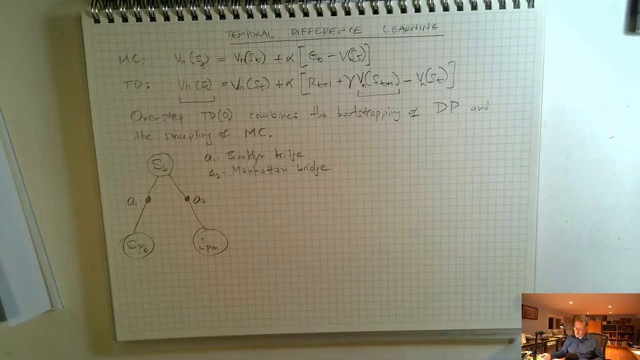 TEMPORAL DIFFERENCE LEARNING
MC: Vπ(St) = Vπ(St) + α [Gt − V(St)]
TD: Vπ(St) = Vπ(St) + α [Rt+1 + γ Vπ(St+1) − Vπ(St)]
One-step TD(0) combines the bootstrapping of DP and
the sampling of MC.
a1: Brooklyn bridge
a2: Manhattan bridge
Sb
a1 a2